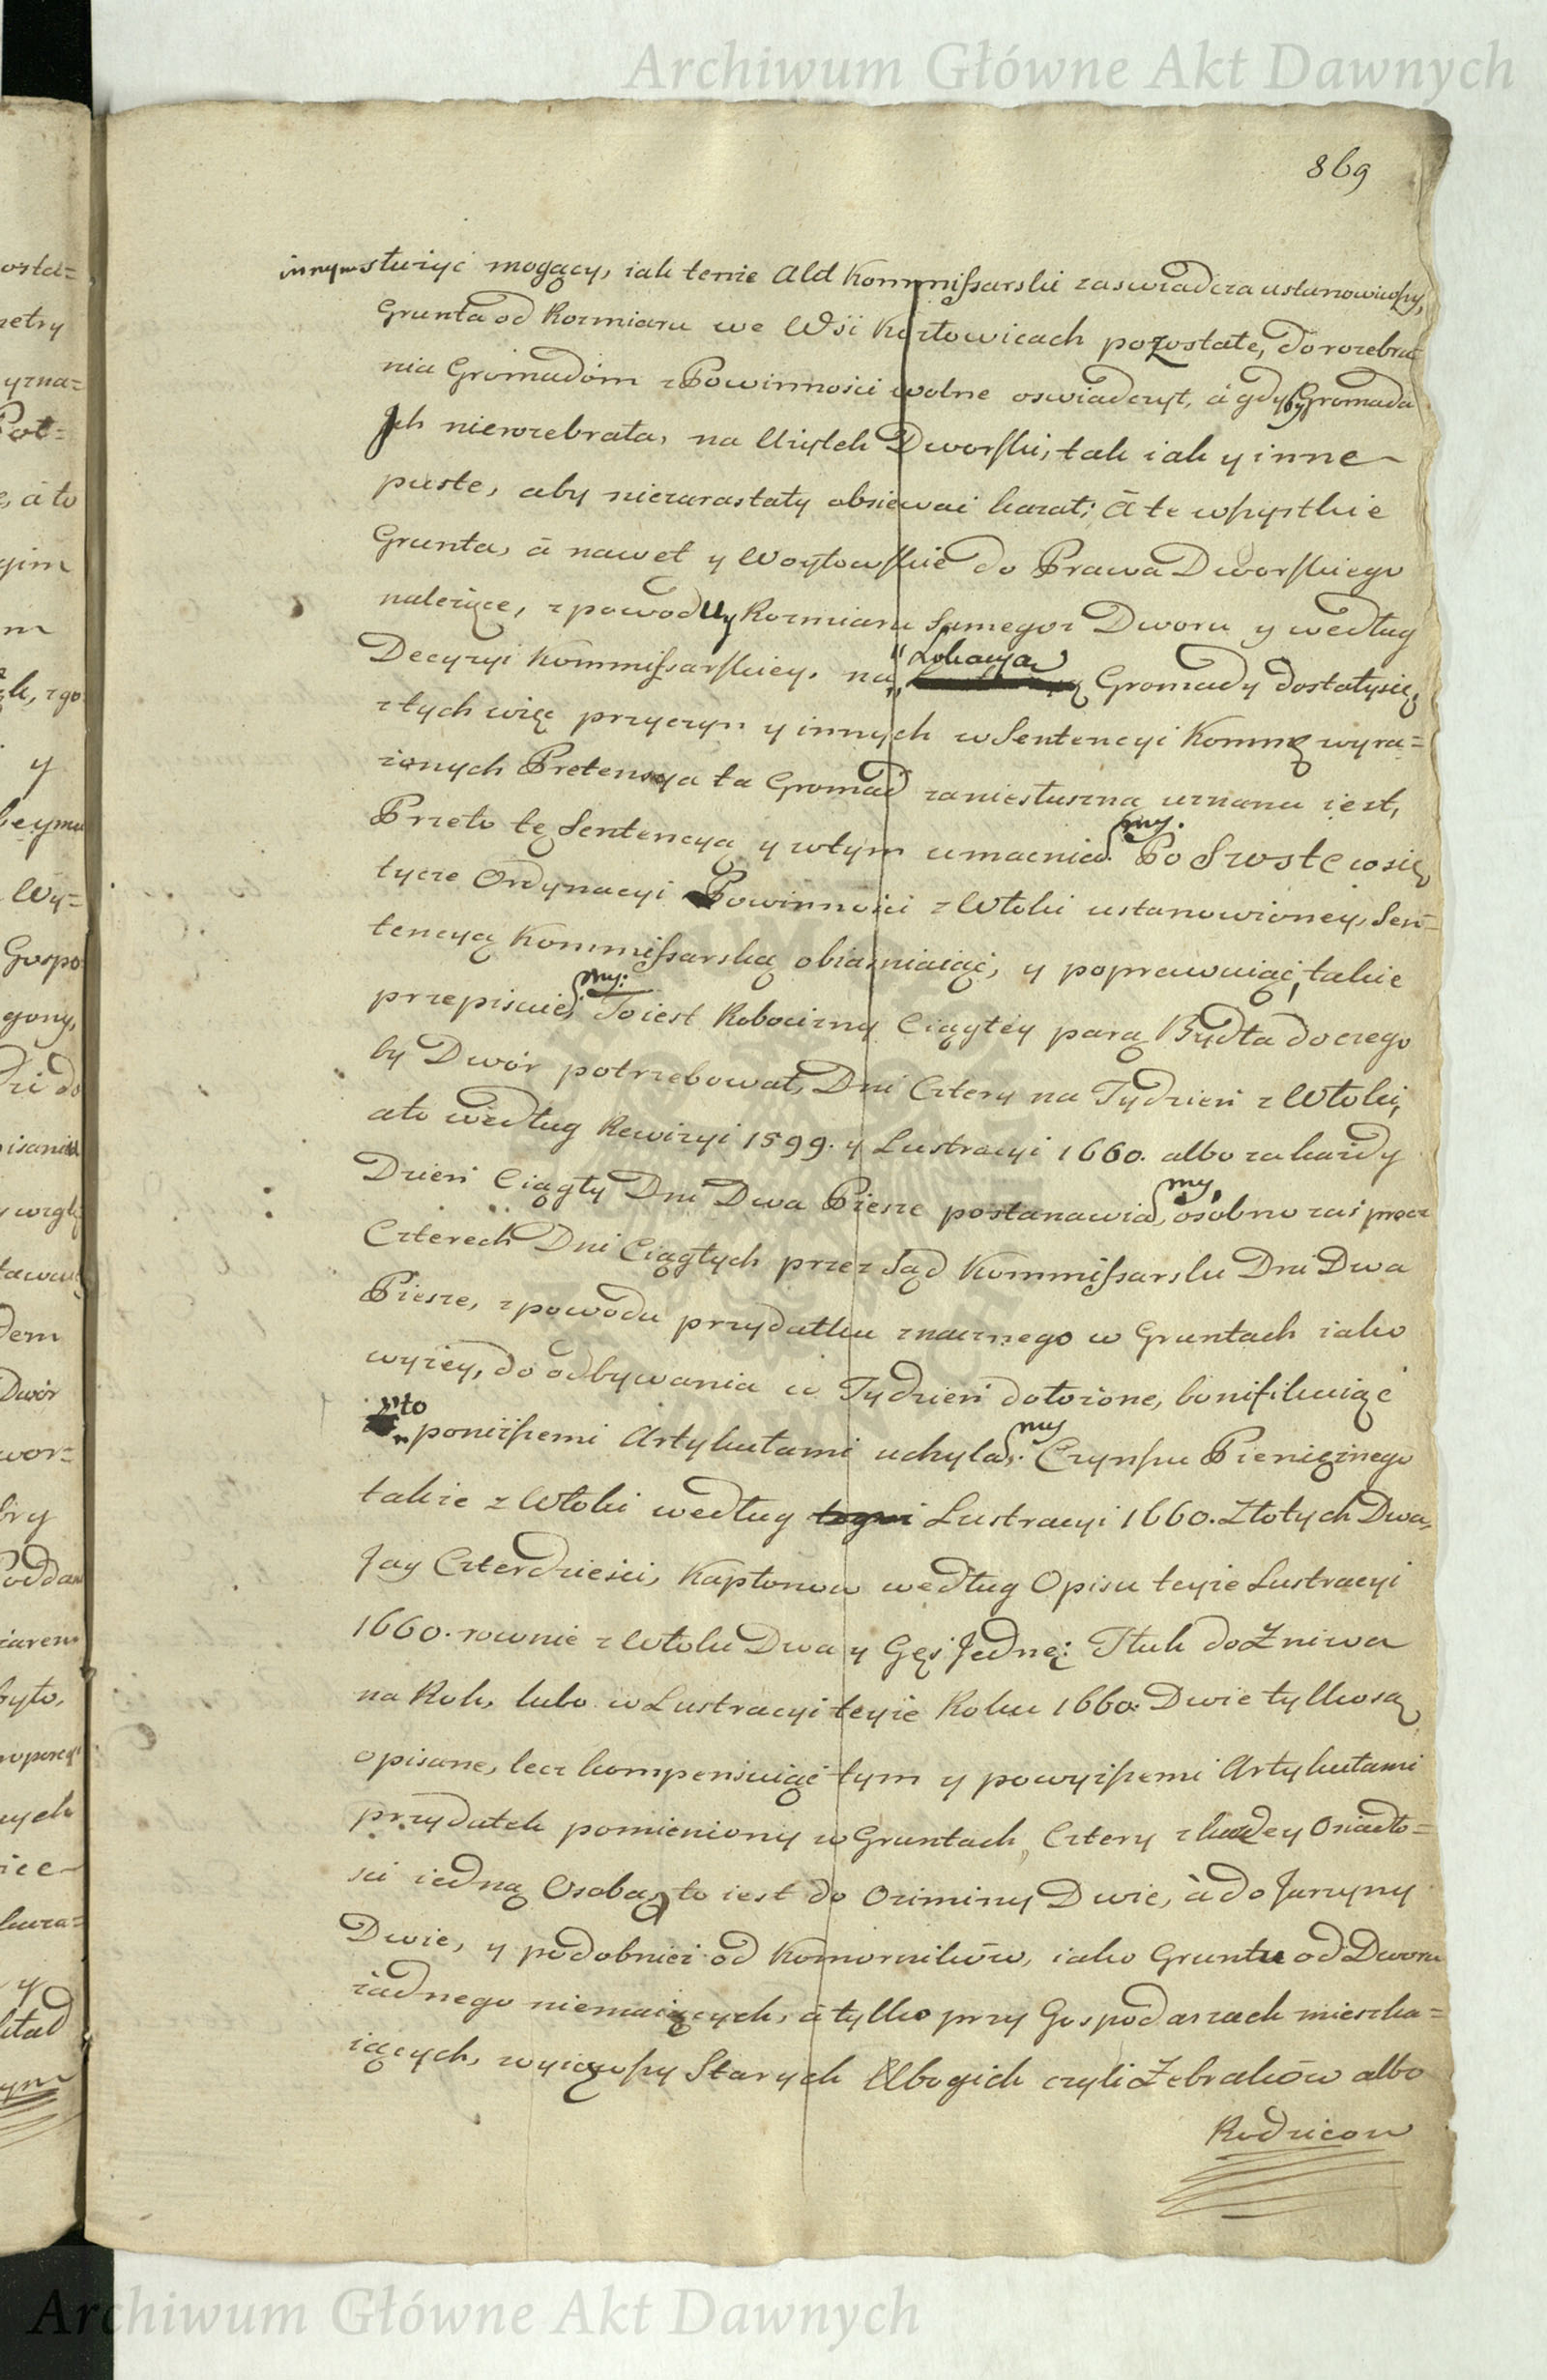 Archiwum Główne Akt Dawnych
869
innym służyć mogący, iak tenże Akt Kommissarski zaswiadcza ustanowiwszy,
Grunta od Rozmiaru we Wsi Kozłowicach pozostałe, do rozebra=
nia Gromadóm z Powinności wolne oswiadczył, á gdyby Gromada
Jch nierozebrała, na Użytek Dworski, tak iak y inne
puste, aby niezarastały obsiewać kazał; á te wszystkie
Grunta, á nawet y Woytowskie do Prawa Dworskiego
należące, z powodu Rozmiaru samegoż Dworu y według
Decyzyi Kommissarskiey, na Lokacyą Gromady dostałysię,
z tych więc przyczyn y innych w Sentencyi Kommą wyra=
żonych Pretensya ta Gromad zaniesłuszną uznana iest,
Przeto tę Sentencyą y wtym umacniamy. Po Szoste co się
tycze Ordynacyi Powinności z Włoki ustanowioney, Sen=
tencyą Kommissarską obiasniaiąc, y poprawuiąc, takie
przepisuiemy: To iest Robocizny Ciągłey parą Bydła do czego
by Dwór potrzebował, Dni Cztery na Tydzień z Włoki,
ato według Rewizyi 1599. y Lustracyi 1660. albo za każdy
Dzień Ciągły Dni Dwa Piesze postanawiamy, osobno zaś procz
Czterech Dni Ciągłych przez Sąd Kommissarski Dni Dwa
Piesze, z powodu przydatku znacznego w Gruntach iako
wyżey, do odbywania co Tydzień dołożone, bonifikuiąc
to poniższemi Artykułami uchylamy. Czynszu Pieniężnego
także z Włoki według Lustracyi 1660. Złotych Dwa,
Jay Czterdzieści, Kapłonow według Opisu teyże Lustracyi
1660. rownie z Włoki Dwa y Gęś Jednę: Tłuk do Żniwa
na Rok, lubo w Lustracyi teyże Roku 1660. Dwie tylko są
opisane, lecz kompensuiąc tym y powyższemi Artykułami
przydatek pomieniony w Gruntach, Cztery z każdey Osiadło=
sci iedną Osobą, to iest do Oziminy Dwie, á do Jarzyny
Dwie, y podobnież od Komorników, iako Gruntu od Dworu
żadnego niemaiących, á tylko przy Gospodarzach mieszka=
iących, wyiąwszy Starych Ubogich czyli Żebraków albo
Rodzicow
Archiwum Główne Akt Dawnych